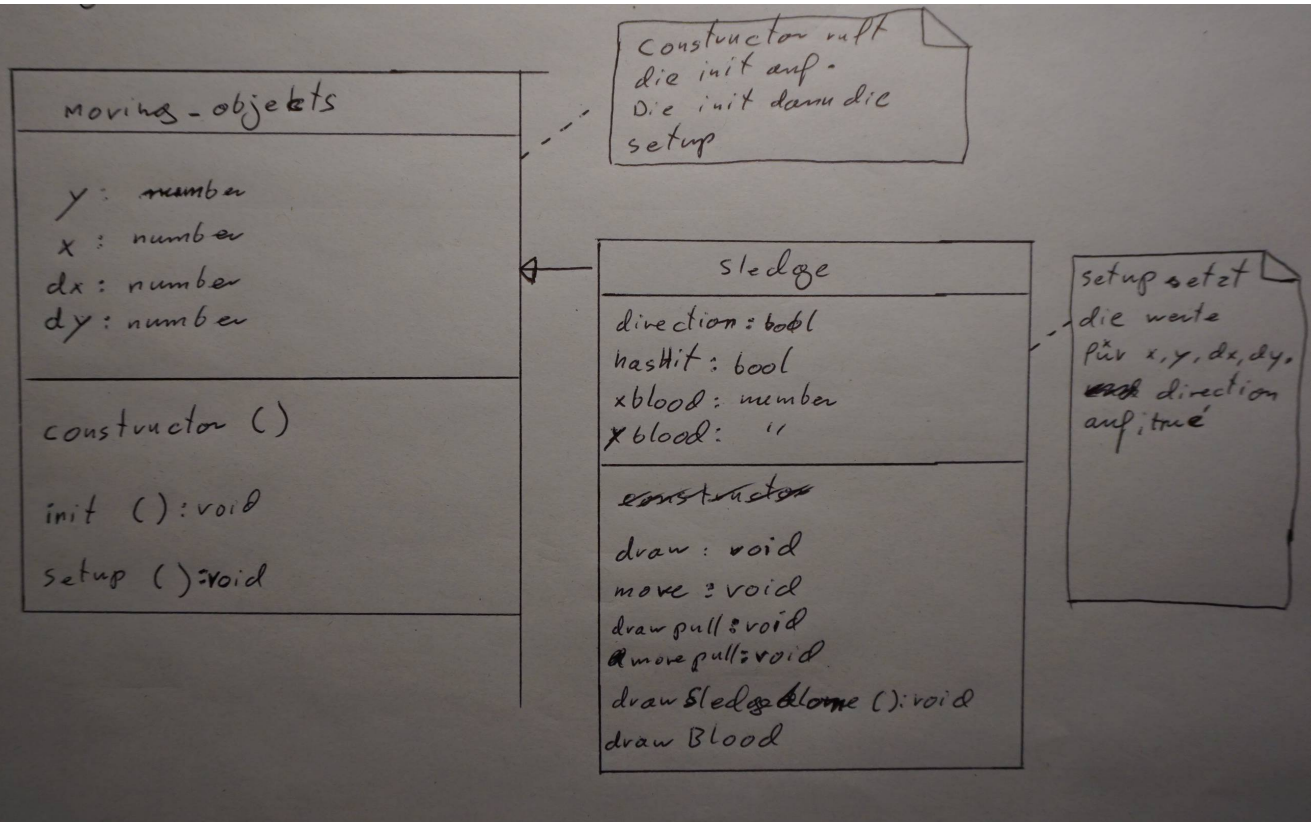 moving_objekts
y : number
x : number
dx : number
dy : number
constructor ()
init () : void
setup () : void
Constructor ruft
die init auf.
Die init dann die
setup
sledge
direction : bool
hasHit : bool
xblood : number
blood : "
constructor
draw : void
move : void
draw pull : void
move pull : void
draw Sledge Alone () : void
draw Blood
setup setzt
die werte
für x, y, dx, dy.
direction
auf 'true'